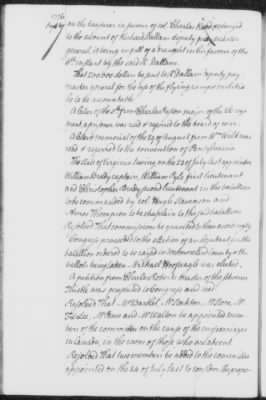 1776
on the treasurer in favour of col. Charles Read & charged
to the account of Richard Dallam deputy pay master
general, it being in full of a draught in his favour of the
6th instant by the said R. Dallam.
That 200,000 dollars be sent to R. Dallam deputy pay
master general for the use of the flying camp & militia
he to be accountable
A letter of the 5th from major of the 26 regi
ment a prisoner was read & referred to the board of war.
A letter & memorial of the 29 of August from Wm. was
read & referred to the convention of Pennsylvania
The State of Virginia having on the 23 of July last appointed
William Brady captain, William Pyle first lieutenant
and Christopher Brady second lieutenant in the battalion
to be commanded by col. Hugh Stevenson and
Amos Thompson to be chaplain to the said battalion
Resolved That commissions be granted to them accordingly
Congress proceeded to the election of an adjutant for the
battalion ordered to be raised in Westmoreland county & the
ballots being taken Michael Hoofnagle was elected.
A petition from Charles Roberts master of the phoenix
Thistle was presented to Congress and read:
Resolved That Mr. Bartlet, Mr. Stockton, Mr. Stone, Mr.
Mr. Penn and Mr. Walton be appointed mem
bers of the committee on the cause of the miscarriages
in Canada, in the room of those who are absent
Resolved That two members be added to the committee
appointed on the 24 of July last to consider the propri